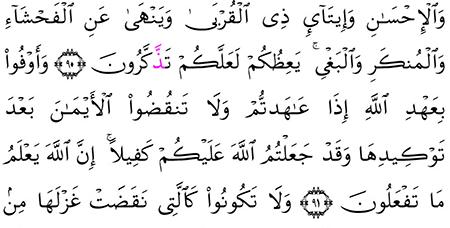 وَٱلْإِحْسَـٰنِ وَإِيتَآىِٕ ذِى ٱلْقُرْبَىٰ وَيَنْهَىٰ عَنِ ٱلْفَحْشَآءِ
وَٱلْمُنكَرِ وَٱلْبَغْىِ ۚ يَعِظُكُمْ لَعَلَّكُمْ تَذَكَّرُونَ ٩٠ وَأَوْفُوا۟
بِعَهْدِ ٱللَّهِ إِذَا عَـٰهَدتُّمْ وَلَا تَنقُضُوا۟ ٱلْأَيْمَـٰنَ بَعْدَ
تَوْكِيدِهَا وَقَدْ جَعَلْتُمُ ٱللَّهَ عَلَيْكُمْ كَفِيلًا ۚ إِنَّ ٱللَّهَ يَعْلَمُ
مَا تَفْعَلُونَ ٩١ وَلَا تَكُونُوا۟ كَٱلَّتِى نَقَضَتْ غَزْلَهَا مِنۢ